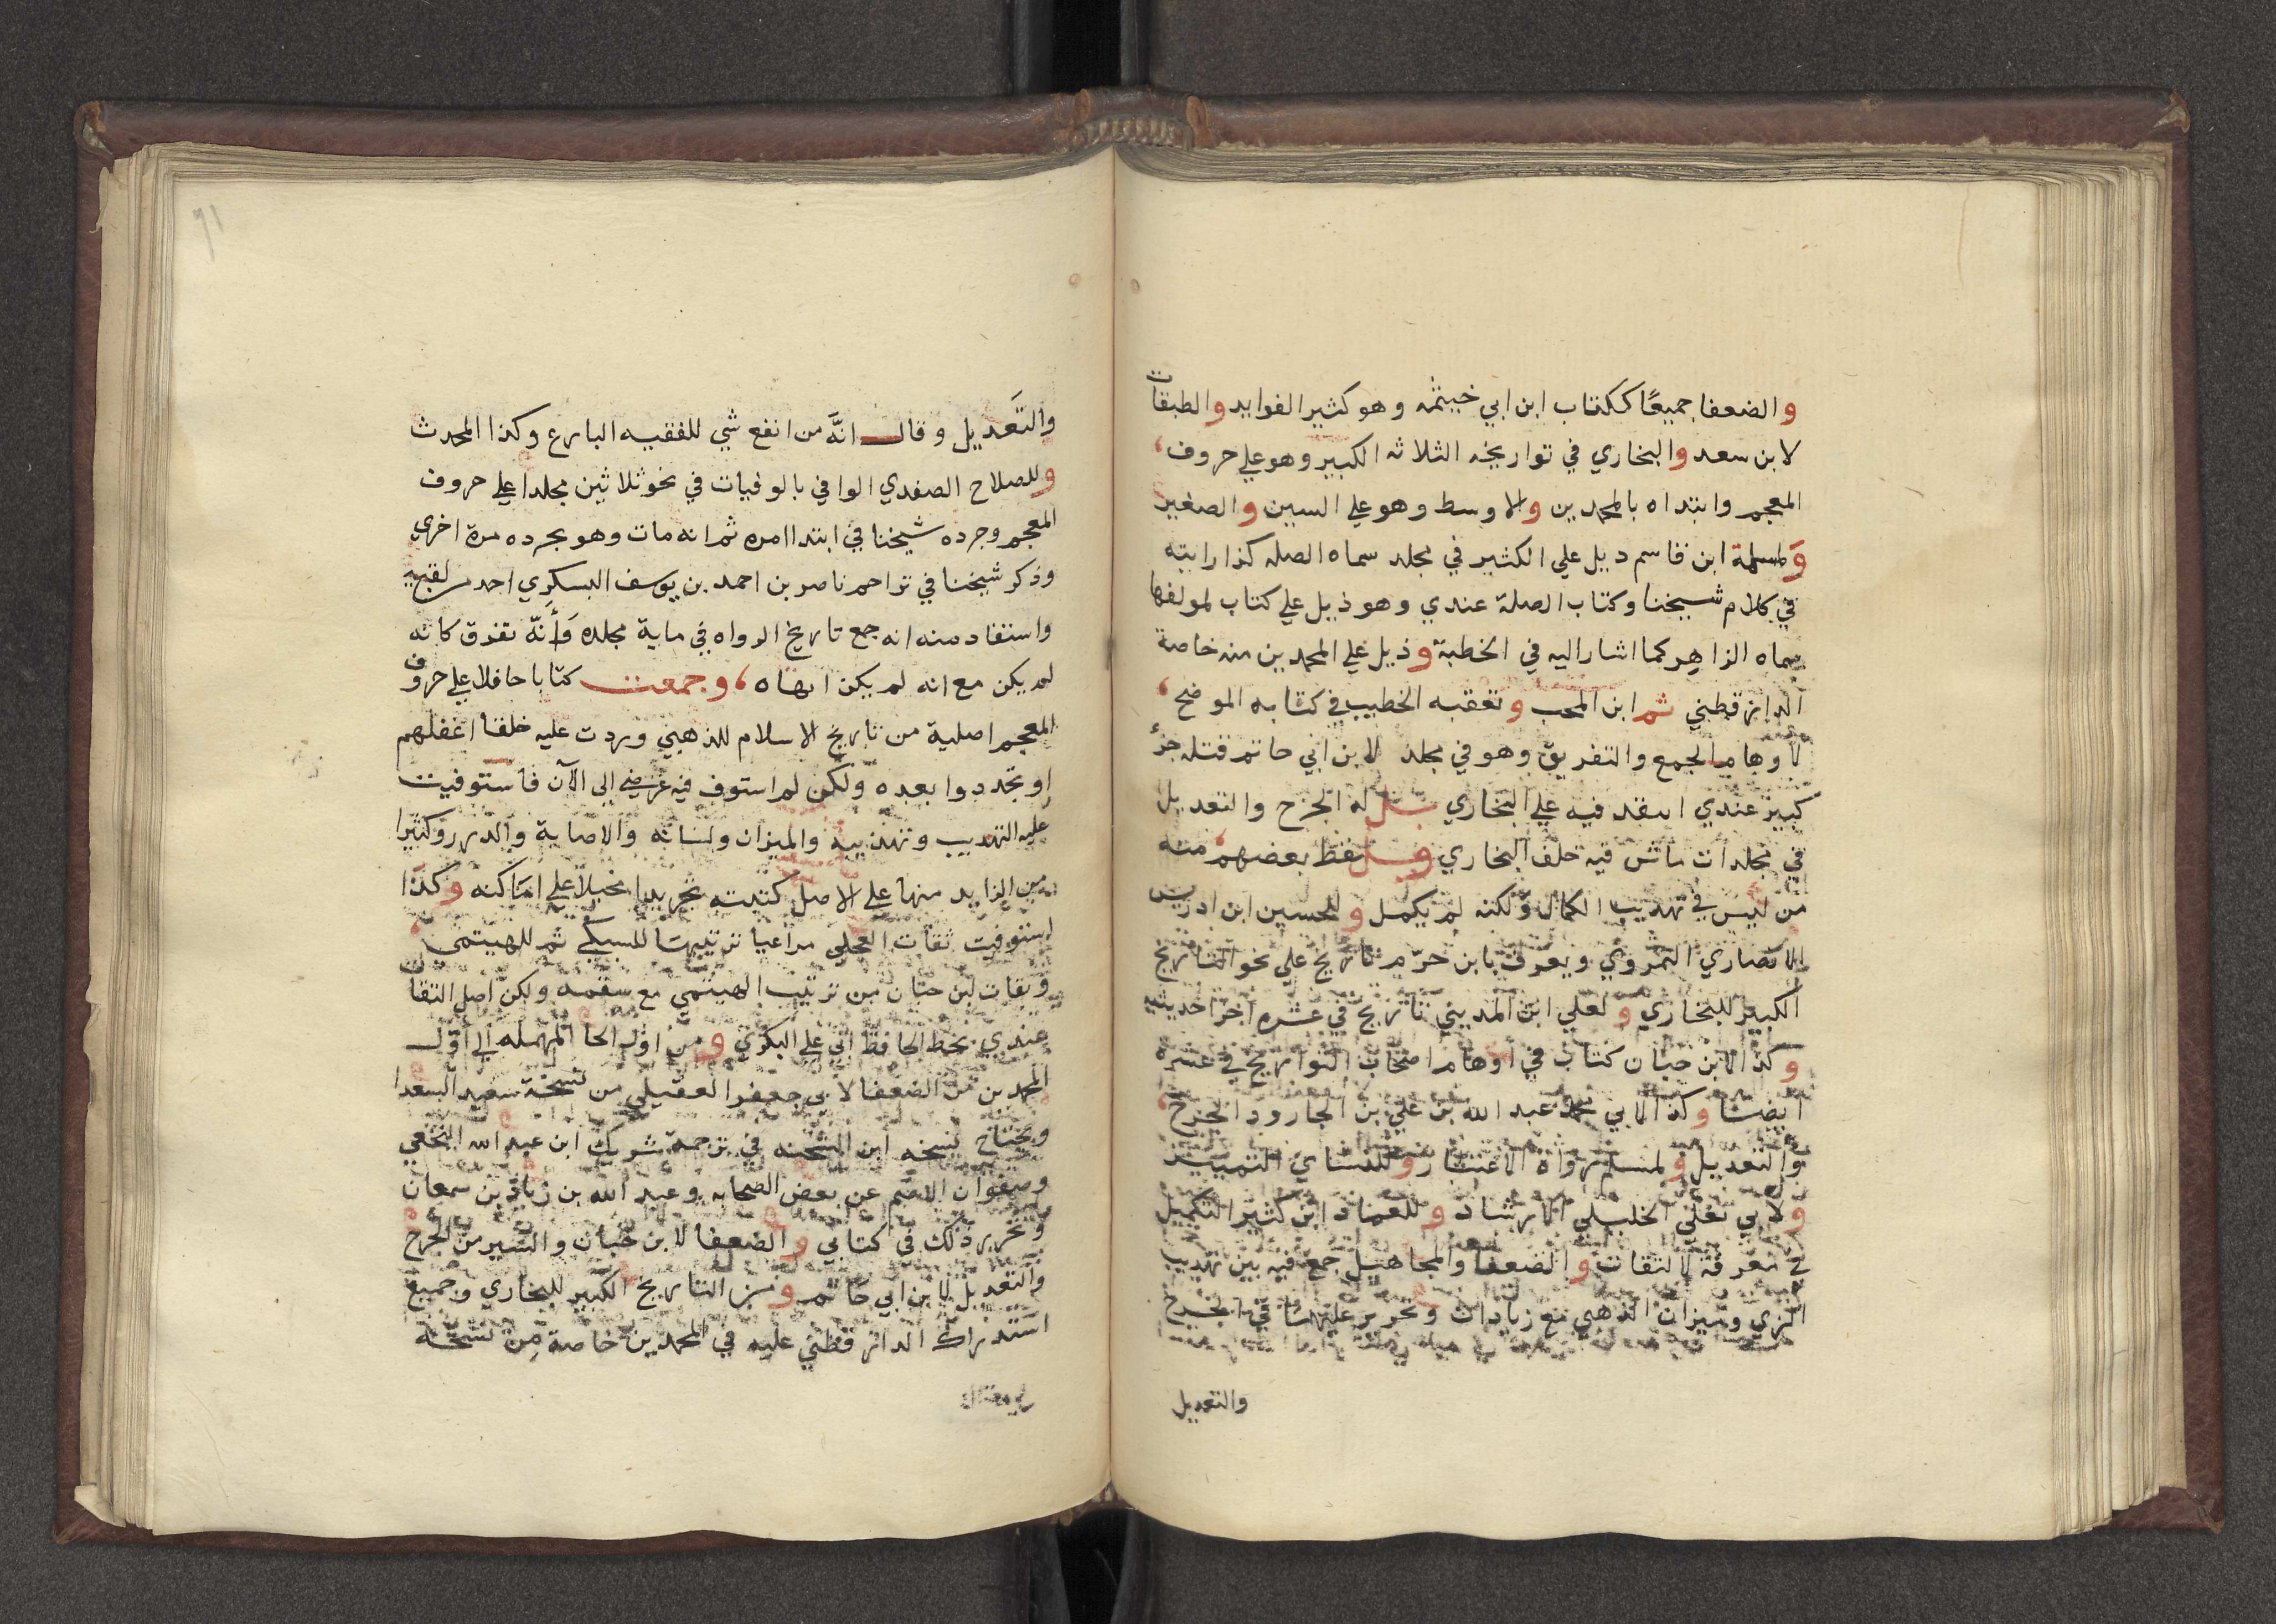 والضعفا جميعًا ككتاب ابن ابي خيثمه وهو كثير الفوايد والطبقات
لابن سعد والبخاري في تواريخه الثلاثه الكبير وهو علي حروف
المعجم وابتداه بالمحمدين والاوسط وهو علي السنين والصغير
ولمسلمة ابن قاسم ديل علي الكثير في مجلد سماه الصله كذا رايته
في كلام شيخنا وكتاب الصلة عندي وهو ذيل علي كتاب لمولفها
سماه الزاهر كما اشار اليه في الخطبة وذيل علي المحمدين منه خاصة
الدارقطني ثم ابن المحب وتعقبه الخطيب في كتابه الموضح
لاوهام الجمع والتفريق وهو في مجلد لابن ابي حاتم قتله جزٔ
كبير عندي انتقد فيه علي البخاري بل له الجرح والتعديل
في مجلدات ماش فيه خلف البخاري بعضهم منه
من ليس في تهديب الكمال ولكنه لم يكمل وللحسين ابن ادريس
الانصاري الهروي ويعرف بابن خرّم تاريخ علي نحو التاريخ
الكبير للبخاري ولعلي ابن المديني تاريخ في عشره اجزا حديثيه
وكذا لابن حبان كتاب في اوهام اصحاب التواريخ في عشره
ايضا وكذا لابي محمد عبد الله بن علي بن الجارود الجرح
والتعديل ولمسلم رواة الاعتبار وللنساي التمييز
ولابي يعلي الخليلي الارشاد وللعماد ابن كثير التكميل
في معرفة الثقات والضعفا والمجاهيل جمع فيه بين تهديب
المزي وميزان الذهبي مع زيادات وتحرير عليهما في الجرح
والتعديل
والتعديل وقال انّه من انفع شي للفقيه البارع وكذا المحدث
وللصلاح الصفدي الوافي بالوفيات في نحو ثلاثين مجلدا علي حروف
المعجم وجرده شيخنا في ابتدا امره ثم انه مات وهو يجرده مرة اخري
وذكر شيخنا في تراجم ناصر بن احمد بن يوسف البسكري احد من لقيه
واستفاد منه انه جمع تاريخ الرواه في ماية مجلده وأنّه تفرق كانه
لم يكن مع انه لم يكن انهاه، وجمعت كتابا حافلا علي حروف
المعجم اصلية من تاريخ الاسلام للذهبي وزدت عليه خلقا اغفلهم
او تجددوا بعده ولكن لم استوف فيه غرضي الي الآن فاستوفيت
عليه التهديب وتهذيبه والميزان ولسانه والاصابة والدرر وكثيرا
من الزايد منها علي الاصل كتبته تجريدا مخيلا علي اماكنه وكذا
استوفيت ثقات العجلي مراعيا ترتيبها للسبكي ثم للهيتمي
وثقات ابن حبان من ترتيب الهيتمي مع سقمه ولكن اصل الثقات
عندي بخط الحافظ ابي علي البكري ومن اول الحا المهمله الي اول
المحمدين من الضعفا لابي جعفر العقيلي من نسخة سعيد السعدا
ويحتاج نسخه ابن الشحنه في ترجمة شريك ابن عبد الله النخعي
وصفوان الاصم عن بعض الصحابه وعبد الله بن زياد بن سمعان
وتحرير ذلك في كتابي والضعفا لابن حبان واليسير من الجرح
والتعديل لابن ابي حاتم ومن التاريخ الكبير للبخاري وجميع
استدراك الدارقطني عليه في المحمدين خاصة من نسخة